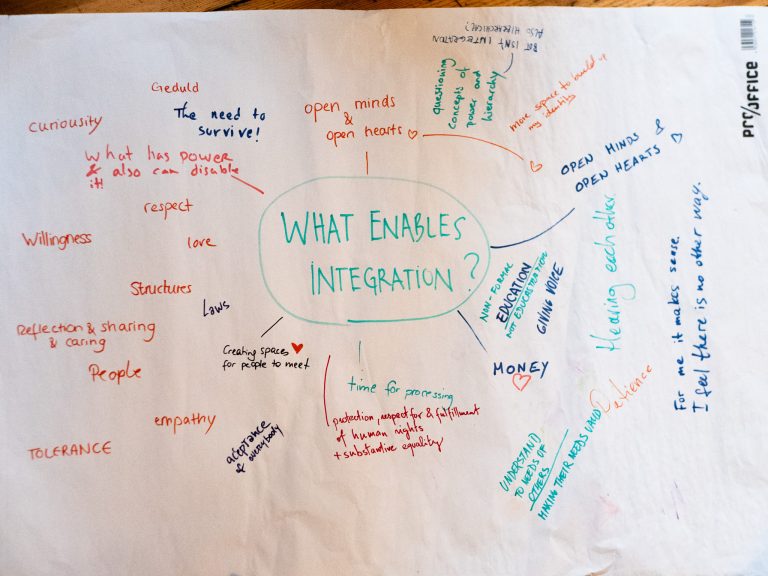 WHAT ENABLES
INTEGRATION?
Geduld
curiousity
The need to
survive!
What has power
& also can disable
it!
respect
Willingness
love
Structures
Laws
Reflection & sharing
& caring
People
empathy
TOLERANCE
acceptance
of everybody
Creating spaces
for people to meet
time for processing
protection, respect for & fulfillment
of human rights
+ substantive equality
open minds
&
open hearts
questioning
concepts of
power and
hierarchy
BUT ISN'T INTEGRATION
ALSO HIERARCHICAL?
more space to build up
my identity
OPEN MINDS &
OPEN HEARTS
NON-FORMAL
EDUCATION
NOT EDUCASTRATION
GIVING VOICE
Hearing each other
MONEY
Patience
UNDERSTAND
TO NEEDS OF
OTHERS
MAKING THEIR NEEDS VALID
For me it makes sense.
I feel there is no other way.
PRO/OFFICE